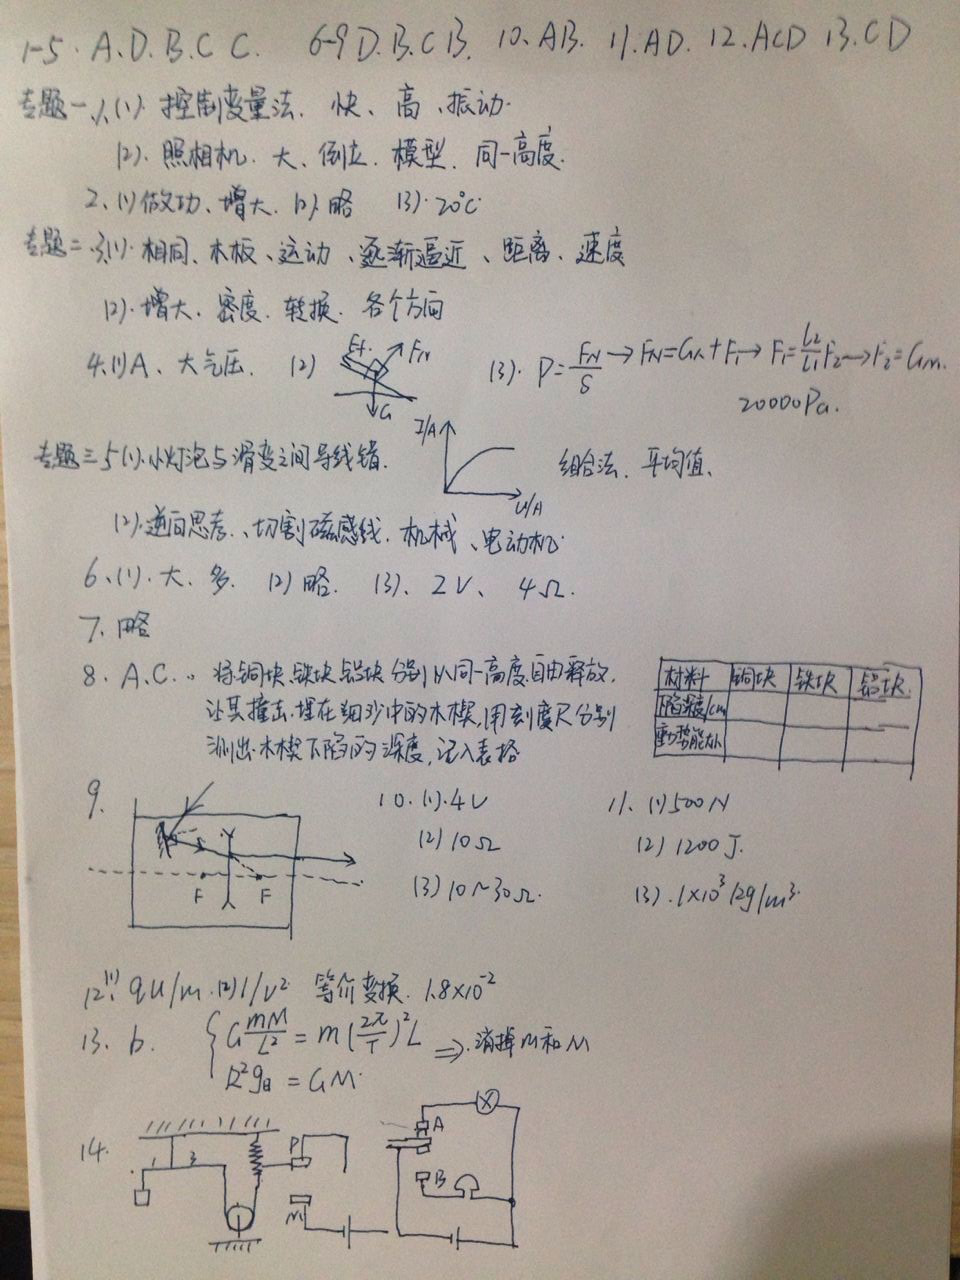 1-5. A.D.B.C C. 6-9 D.B.C B. 10.AB. 11.AD. 12.ACD 13.CD
专题一、1、(1). 控制变量法. 快、高、振动.
(2). 照相机. 大、倒立. 模型. 同一高度.
2、(1)做功、增大. (2)略 (3).20℃
专题二、3.(1). 相同、木板、运动、逐渐逼近、距离、速度
(2).增大. 密度. 转换. 各个方向
4.(1)A、大气压. (2) FN G (3). P=FN/S→FN=G人+F1→F1=L2/L1 F2→F2=GM.
20000Pa.
专题三 5(1).小灯泡与滑变之间导线错. I/A U/A 组合法、平均值、
(2).逆向思考、切割磁感线. 机械、电动机.
6、(1).大、多. (2)略. (3)、2V、4Ω.
7、略
8. A.C. 将铜块.铁块.铝块分别从同一高度自由释放,
让其撞击埋在细沙中的木楔,用刻度尺分别
测出木楔下陷的深度,记入表格
材料 铜块 铁块 铝块
下陷深度/cm
重力势能大小
9. F F
10.(1).4V
(2)10Ω
(3)10~30Ω.
11.(1)500N
(2)1200J.
(3).1×10³kg/m³.
12、(1)qU/m.(2)1/v² 等价变换. 1.8×10⁻²
13. b. { G mM/L² = m(2π/T)²L ⇒.消掉m和M
R²g日 = GM.
14. 1 3 P M A B